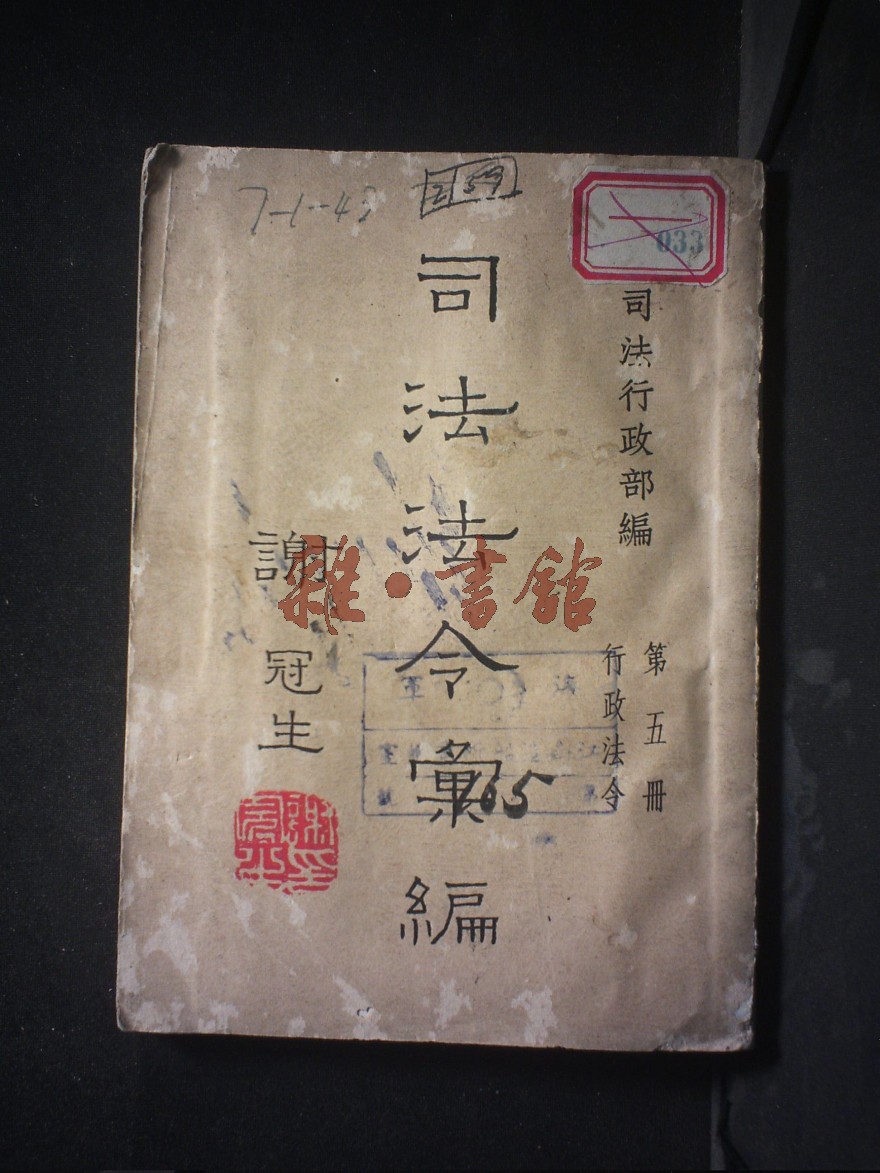 司法行政部編
第五冊
行政法令
司法法令彙編
謝冠生
033
7-1-43
259
165
雜·書館